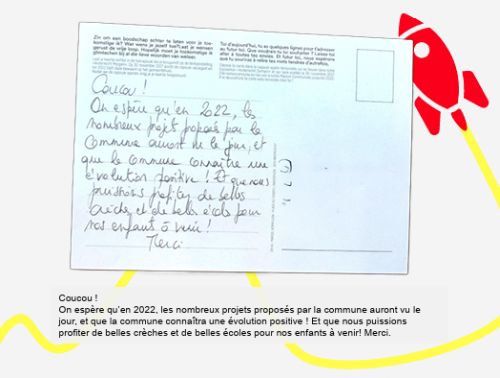 Zin om een boodschap achter te laten voor je toe-
komstige ik? Wat wens je jezelf toe? Laat je wensen
gerust de vrije loop. Hopelijk moet je toekomstige ik
glimlachen bij al die lieve woorden van weleer.
Toi d'aujourd'hui, tu as quelques lignes pour t'adresser
au futur toi. Que voudrais-tu lui souhaiter ? Laisse
aller à toutes tes envies. Et futur toi, nous espérons
que tu souriras à relire tes mots tendres d'autrefois.
Coucou !
On espère qu'en 2022, les
nombreux projets proposés par la
commune auront vu le jour, et
que la commune connaîtra une
évolution positive ! Et que nous
puissions profiter de belles
crèches et de belles écoles pour
nos enfants à venir !
Merci
Coucou !
On espère qu'en 2022, les nombreux projets proposés par la commune auront vu le
jour, et que la commune connaîtra une évolution positive ! Et que nous puissions
profiter de belles crèches et de belles écoles pour nos enfants à venir! Merci.